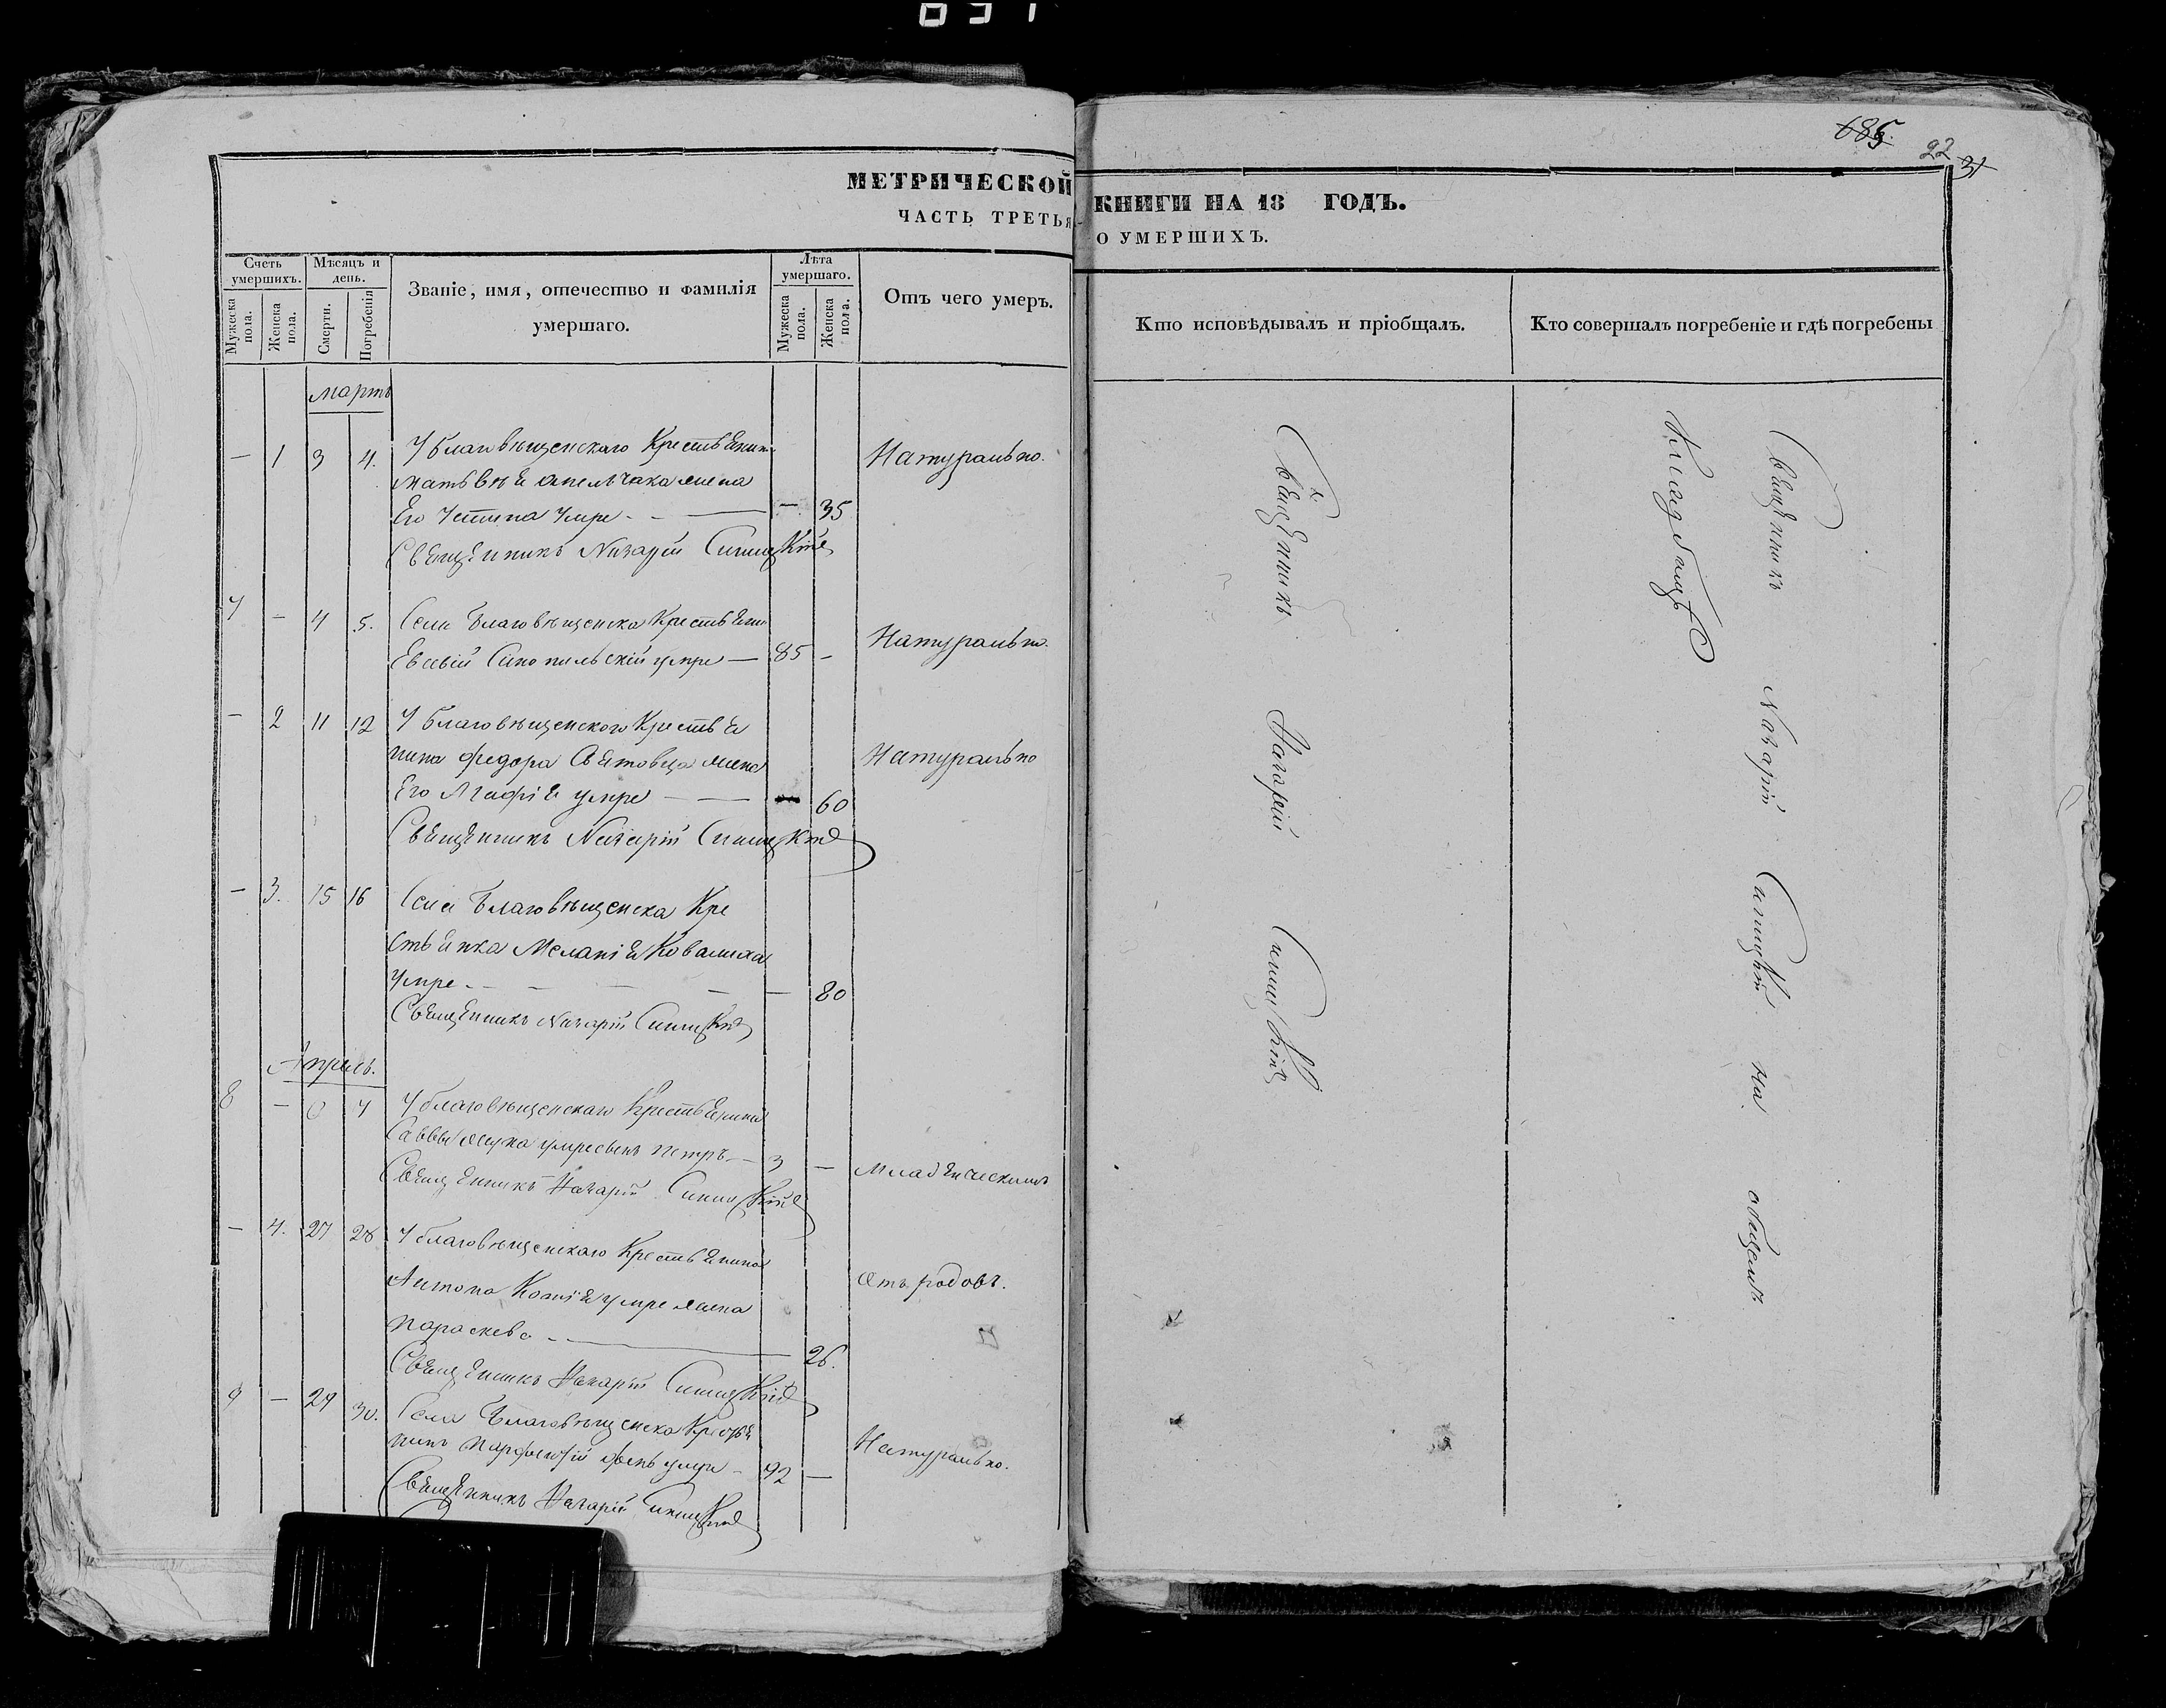 685
22
31
МЕТРИЧЕСКОЙ КНИГИ НА 18 ГОДЪ.
ЧАСТЬ ТРЕТЬЯ О УМЕРШИХЪ.
Счетъ умершихъ.
Мужеска пола.
Женска пола.
Мѣсяцъ и день.
Смерти.
Погребенія
Званіе, имя, отечество и фамилія умершаго.
Лѣта умершаго.
Мужеска пола.
Женска пола.
Отъ чего умеръ.
Кто исповѣдывалъ и пріобщалъ.
Кто совершалъ погребеніе и гдѣ погребены
мартъ
— 1 3 4. У благовѣщенскаго Крестьянина Натурально.
матвѣя жена
Его Устина умре — 35
Священникъ Назарій Синицкій
7 — 4 5. Села Благовѣщенска Крестьянинъ Натурально.
Евсевій умре — 85 —
— 2 11 12 У благовѣщенскаго Крестья
нина Федора жена Натурально
Его Агафія умре — 60
Священникъ Назарій Синицкій
— 3. 15 16 Села Благовѣщенска Кре
стьянка Меланія Ковалиха
умре — 80
Священникъ Назарій Синицкій
Апрель.
8 — 7 У благовѣщенскаго Крестьянина
Саввы умре сынъ Петръ — 3 — Младенческимъ
Священникъ Назарій Синицкій
— 4. 27 28 У благовѣщенскаго Крестьянина
Антона умре жена Отъ родовъ.
Параскева — 26.
Священникъ Назарій Синицкій
9 — 29 30. Села Благовѣщенска Крестья
нинъ умре — 92 — Натурально.
Священникъ Назарій Синицкій
Священникъ Назарій Синицкій
Священникъ Назарій Синицкій на общемъ
Кладбищѣ